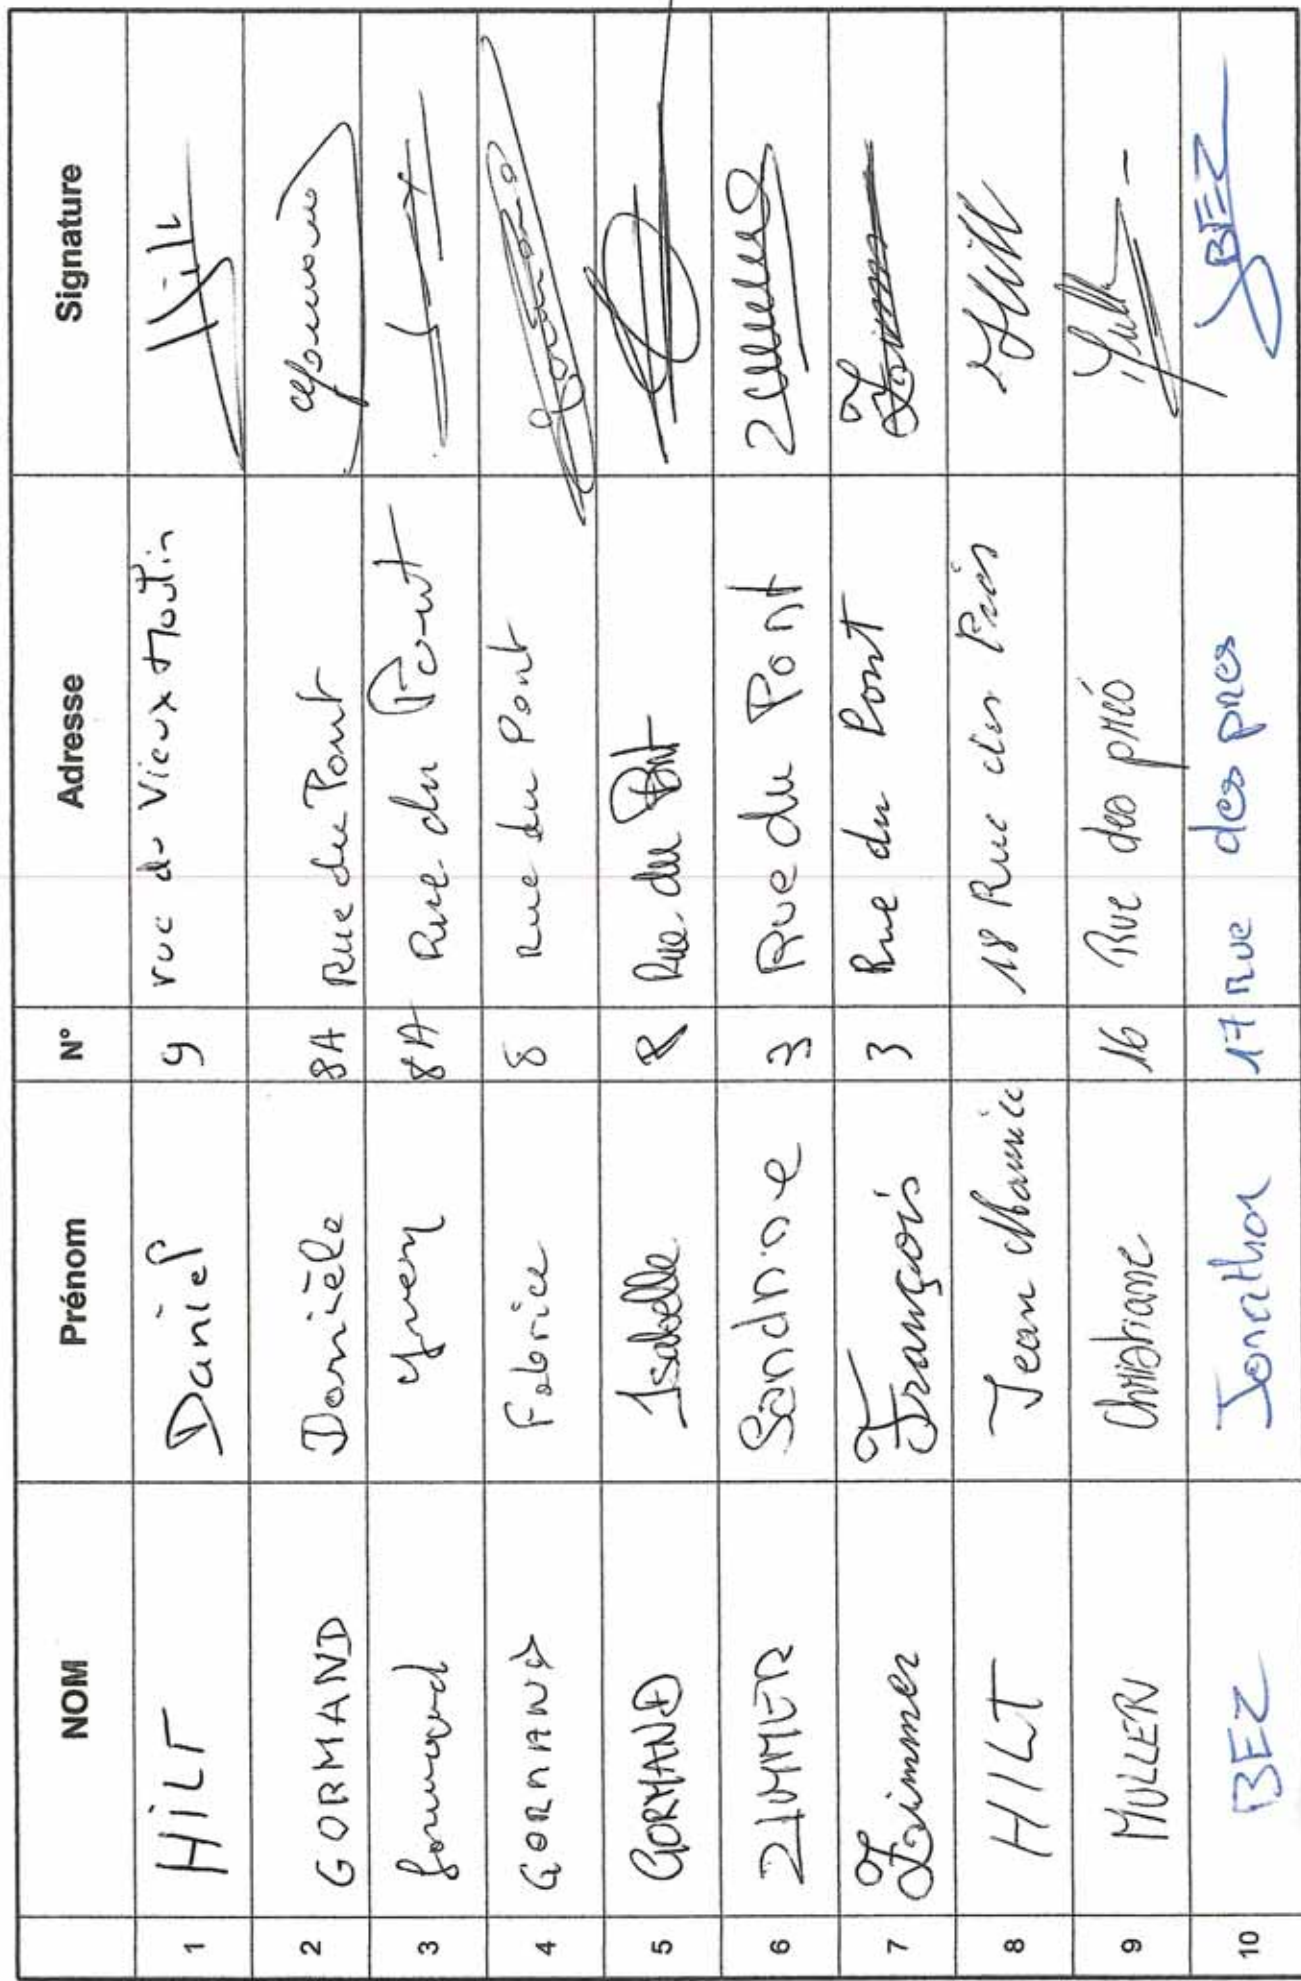 NOM Prénom N° Adresse Signature
1 HiLT Daniel 9 rue du Vieux Moulin Hilt
2 GORMAND Danièle 8A Rue du Pont
3 Gormand Yven 8A Rue du Pont
4 GORMAND Fabrice 8 Rue du Pont
5 GORMAND Isabelle 8 Rue du Pont
6 ZIMMER Sandrine 3 Rue du Pont
7 Zimmer François 3 Rue du Pont
8 HILT Jean Maurice 18 Rue des Prés Hilt
9 MULLER Christiane 16 Rue des prés
10 BEZ Jonathan 17 Rue des pres JBEZ